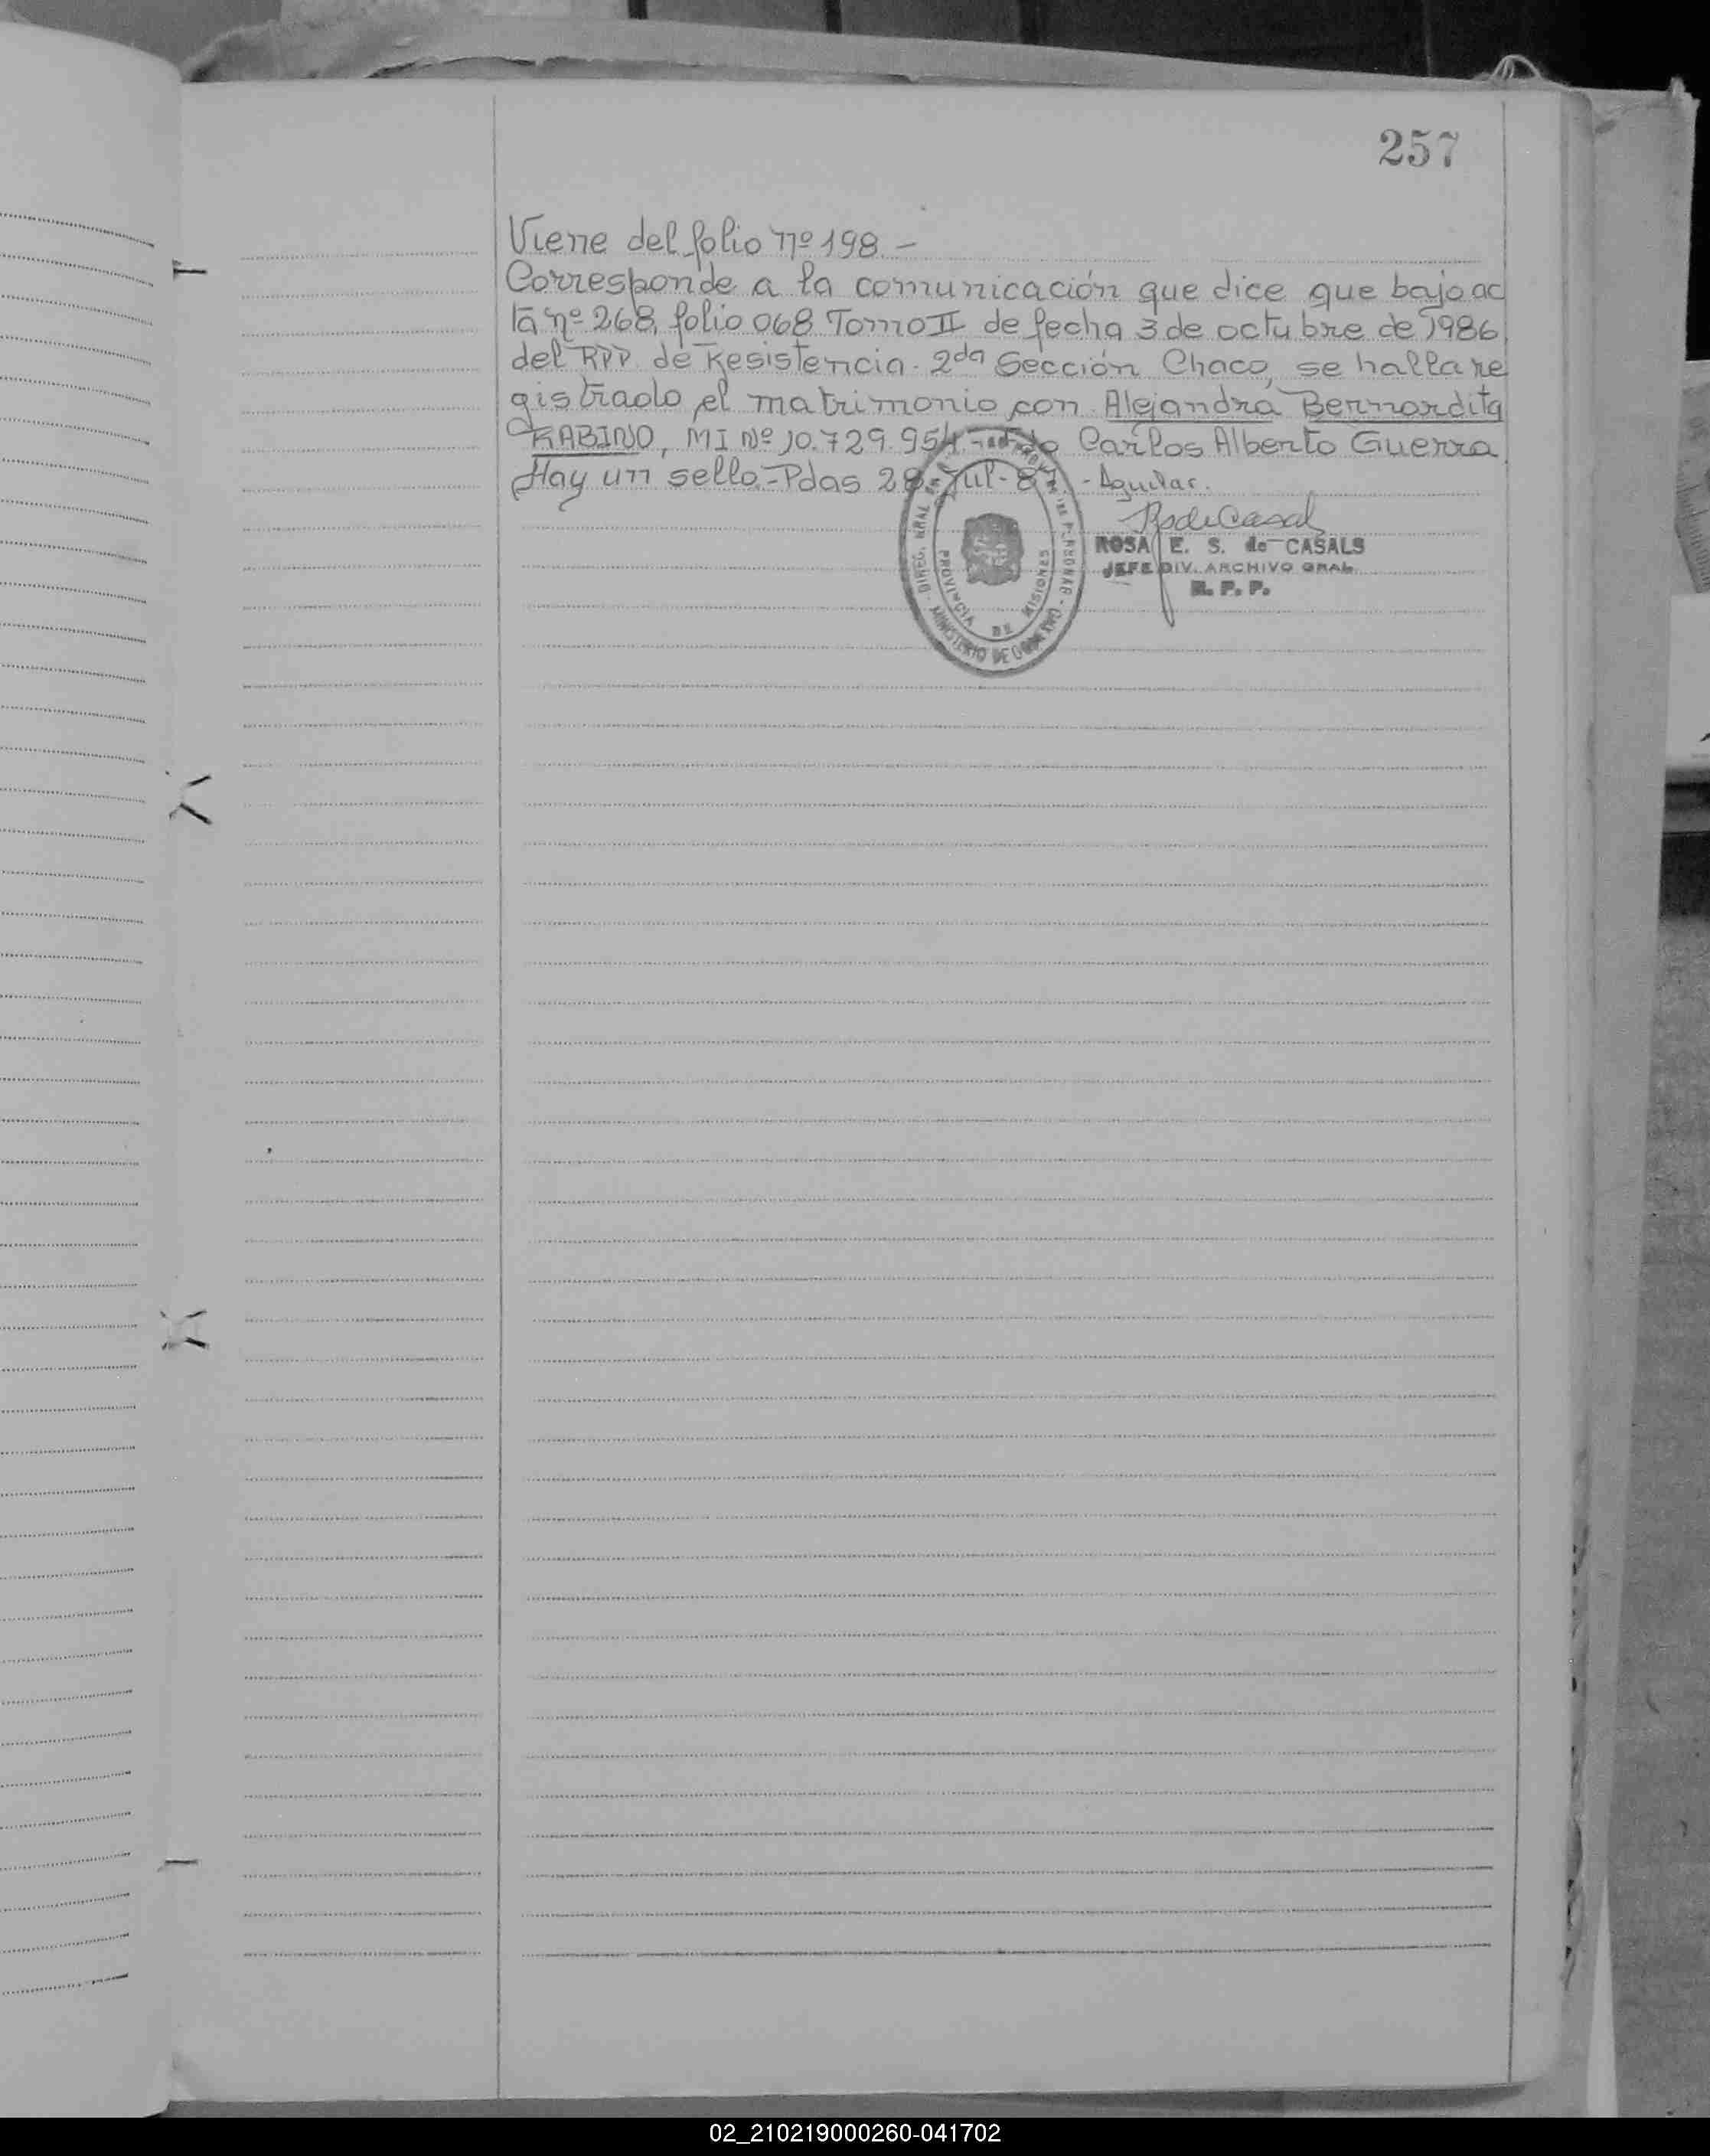 257
Viene del folio nº 198.-
Corresponde a la comunicación que dice que bajo ac
ta nº 268, folio 068 Tomo II de fecha 3 de octubre de 1986,
del RPP. de Resistencia. 2da Sección Chaco, se halla re
gistrado el matrimonio con Alejandra Bernardita
RABINO, MI Nº 10.729.954.- Fdo Carlos Alberto Guerra.
Hay un sello.- Pdas 28- Jul- 87. - Aguilar.
ROSA E. S. de CASALS
JEFE DIV. ARCHIVO GRAL.
R. P. P.
PROVINCIA DE MISIONES
MINISTERIO DE GOBIERNO
02_210219000260-041702